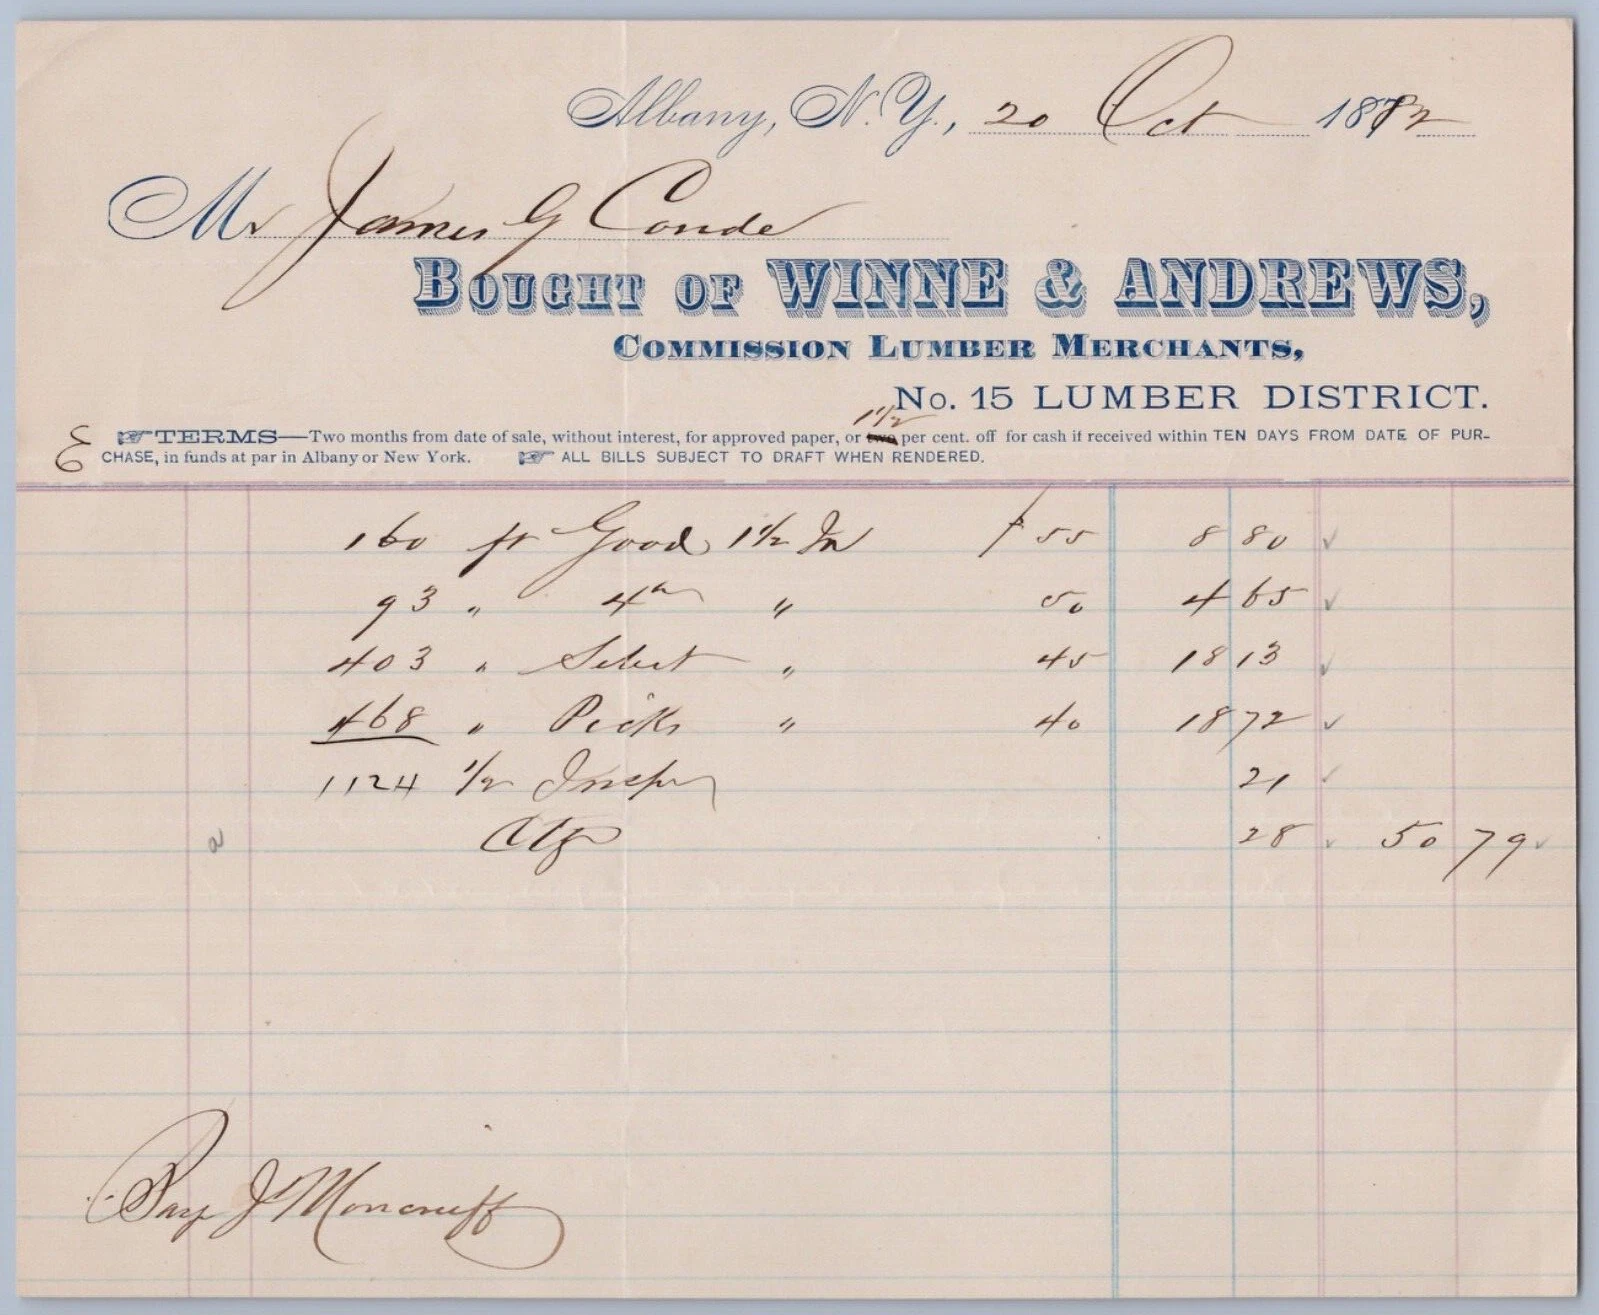 Albany, N.Y., 20 Oct 1882
Mr James G Conde
BOUGHT OF WINNE & ANDREWS,
COMMISSION LUMBER MERCHANTS,
No. 15 LUMBER DISTRICT.
1 1/2
E ☞TERMS—Two months from date of sale, without interest, for approved paper, or two per cent. off for cash if received within TEN DAYS FROM DATE OF PUR-
CHASE, in funds at par in Albany or New York. ☞ ALL BILLS SUBJECT TO DRAFT WHEN RENDERED.
160 ft Good 1 1/2 In $55 8 80 ✓
93 " 4th " 50 4 65 ✓
403 " Select " 45 18 13 ✓
468 " Picks " 40 18 72 ✓
1124 1/2 Inspr 21 ✓
a Ctg 28 ✓ 50 79 ✓
Pay J Moncrieff